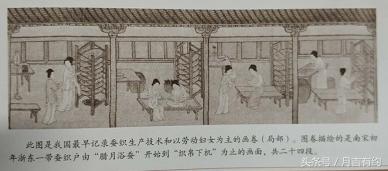 此图是我国最早记录蚕织生产技术和以劳动妇女为主的画卷（局部）。图卷描绘的是南宋初
年浙东一带蚕织户由“腊月浴蚕”开始到“织帛下机”为止的画面，共二十四段。
头条号 / 月吉有约